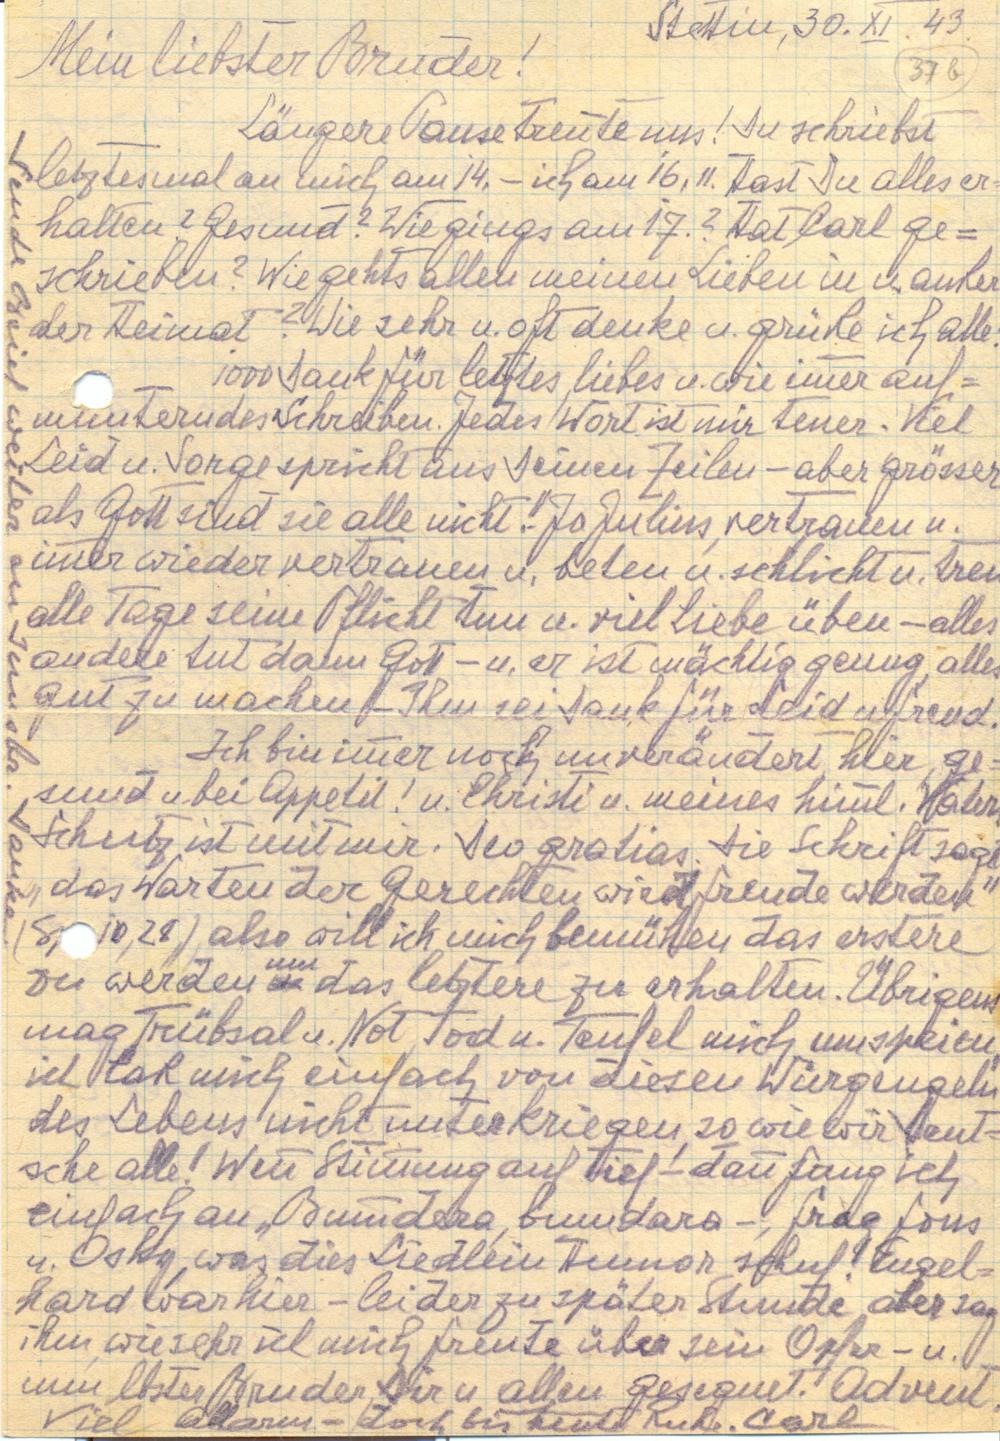 Stettin, 30. XI. 43.
37 b
Mein liebster Bruder!
Längere Pause trennte uns! Du schriebst
letztesmal an mich am 14. – ich am 16.11. Hast Du alles er-
halten? Gesund? Wie gings am 17.? Hat Carl ge=
schrieben? Wie gehts allen meinen Lieben in u. außer
der Heimat? Wie sehr u. oft denke u. grüße ich alle.
1000 Dank für letztes, liebes u. wie im̄er auf=
munterndes Schreiben. Jedes Wort ist mir teuer. Viel
Leid u. Sorge spricht aus Deinen Zeilen – aber grösser
als Gott sind sie alle nicht! Ja Julius, vertrauen u.
im̄er wieder vertrauen u. beten u. schlicht u. treu
alle Tage seine Pflicht tun u. viel Liebe üben – alles
andere tut dann Gott – u. er ist mächtig genug, alles
gut zu machen – Ihm sei Dank für Leid u. Freud.
Ich bin im̄er noch unverändert hier, ge=
sund u. bei Appetit! u. Christi u. meines him̄l. Vaters
Schutz ist mit mir. Deo gratias. Die Schrift sagt
„das Warten der Gerechten wird Freude werden"
10,28) also will ich mich bemühen das erstere
zu werden um das letztere zu erhalten. Übrigens
mag Trübsal u. Not, Tod u. Teufel mich umspeien
ich laß mich einfach von diesen Würgengeln
des Lebens nicht unterkriegen, so wie wir Deut-
sche alle! Wen̄ Stim̄ung auf Tief – dan̄ fang ich
einfach an „Bum̄dera, bumdara –, frag Fons
u. Osky, was dies Liedlein Humor schuf! Engel=
hard war hier – leider zu später Stunde, aber sag
ihm, wie sehr ich mich freute über sein Opfer – u.
nun lbster Bruder Dir u. allen gesegnet. Advent.
Viel Alarm – doch bis heute Ruh. Carl
Sende Brief weiter an Dank